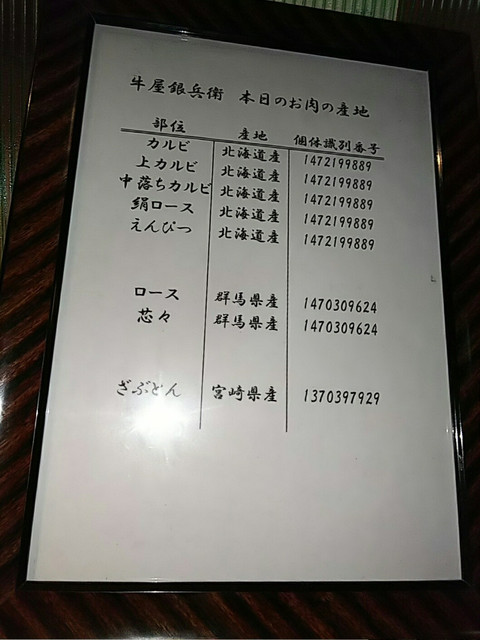 牛屋銀兵衛 本日のお肉の産地
部位 産地 個体識別番号
カルビ 北海道産 1472199889
上カルビ 北海道産 1472199889
中落ちカルビ 北海道産 1472199889
絹ロース 北海道産 1472199889
えんぴつ 北海道産 1472199889
ロース 群馬県産 1470309624
芯々 群馬県産 1470309624
ざぶとん 宮崎県産 1370397929